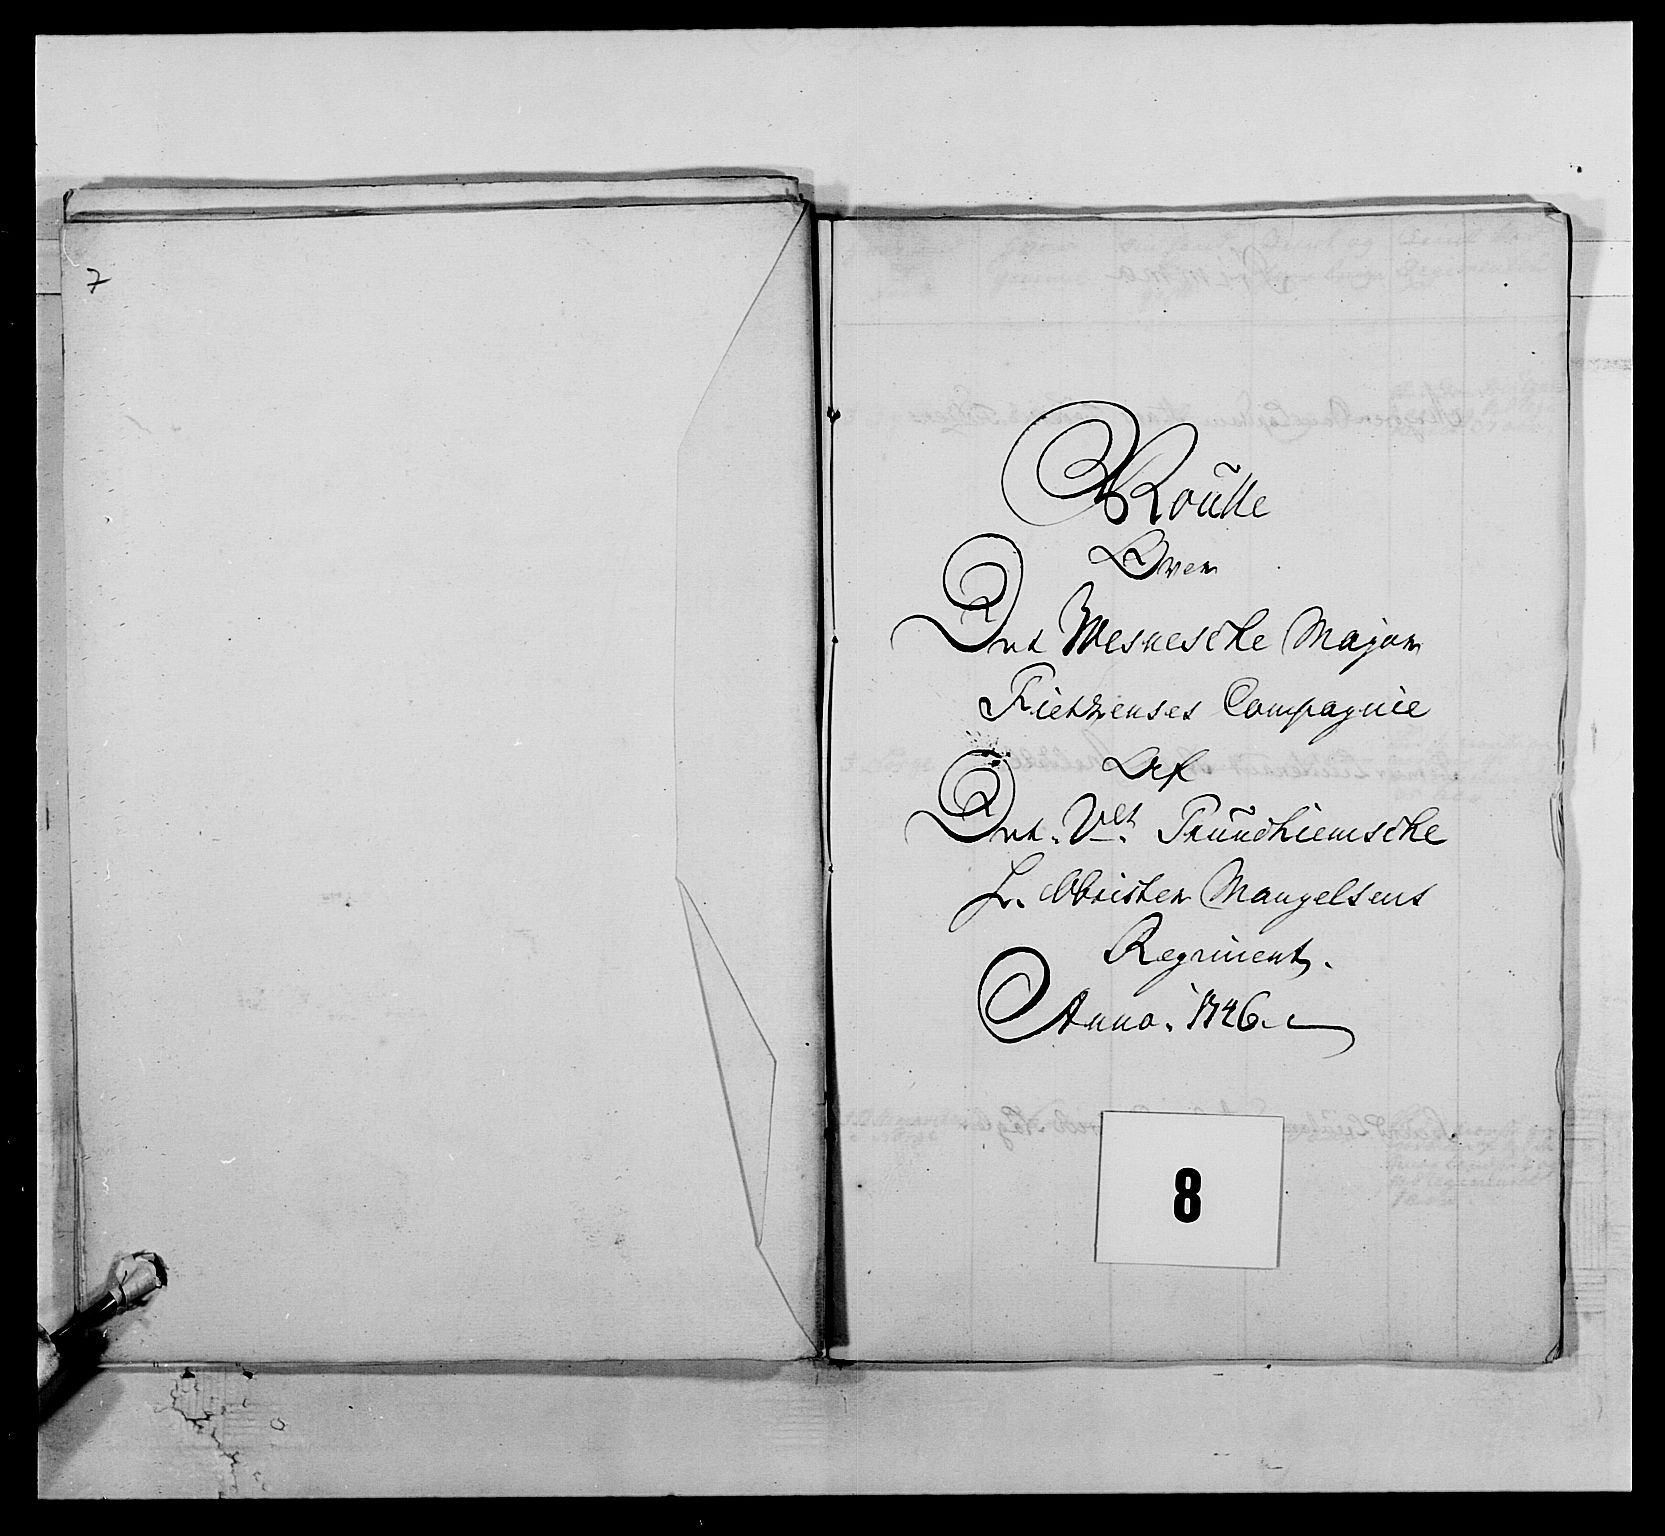 7
Roulle
Over
Det Wesnesche Major
Fietzenses Compagnie
Af
Det. V^let. Trundhiemsche
H. Obrister Mangelsens
Regiment.
Anno. 1746.
8